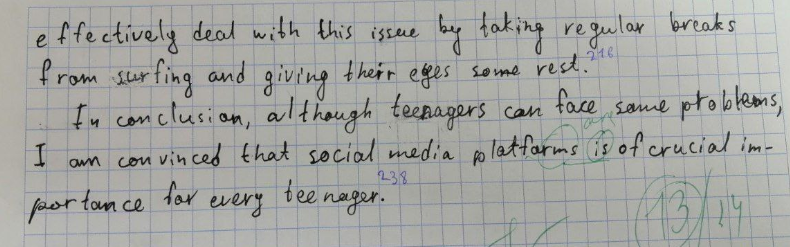 effectively deal with this issue by taking regular breaks
from surfing and giving their eyes some rest. 216
In conclusion, although teenagers can face some problems,
are
I am convinced that social media platforms is of crucial im-
portance for every teenager. 238
13/14